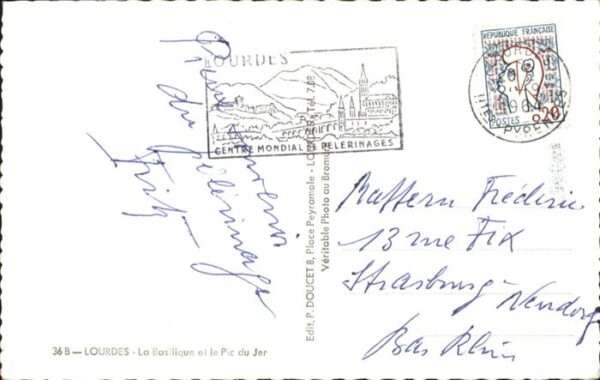 LOURDES
CENTRE MONDIAL DE PELERINAGES
REPUBLIQUE FRANÇAISE
POSTES
0,20
Pieux
souvenir
du Pélérinage
Fritz
Edit. P. DOUCET 8, Place Peyramale - LOURDES
Véritable Photo au Bromure
Frédéric
13 rue Fix
Strasburg-Neudorf
Bas Rhin
36 B — LOURDES - La Basilique et le Pic du Jer